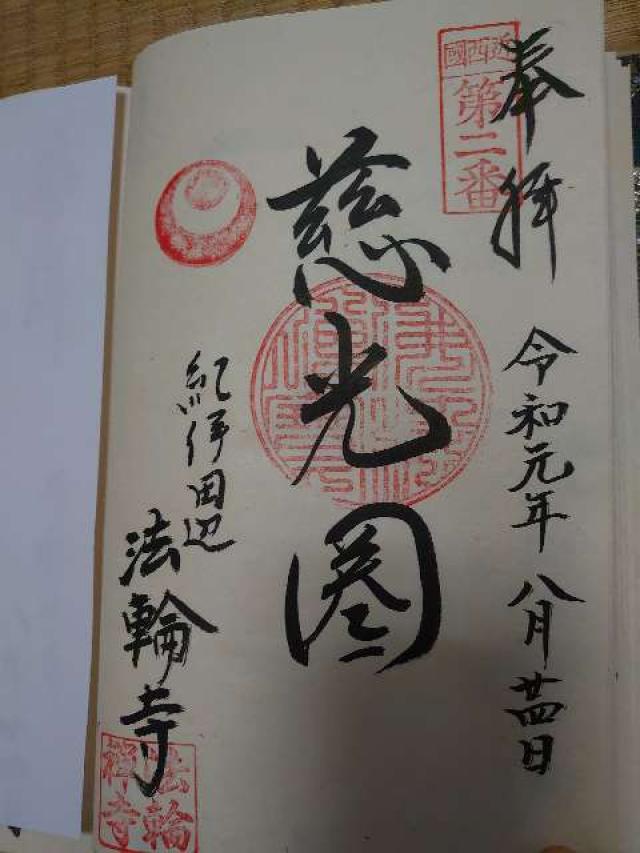 奉拝
近西國
第二番
令和元年 八月廿四日
慈光圏
紀伊田辺
法輪寺
法輪
禅寺